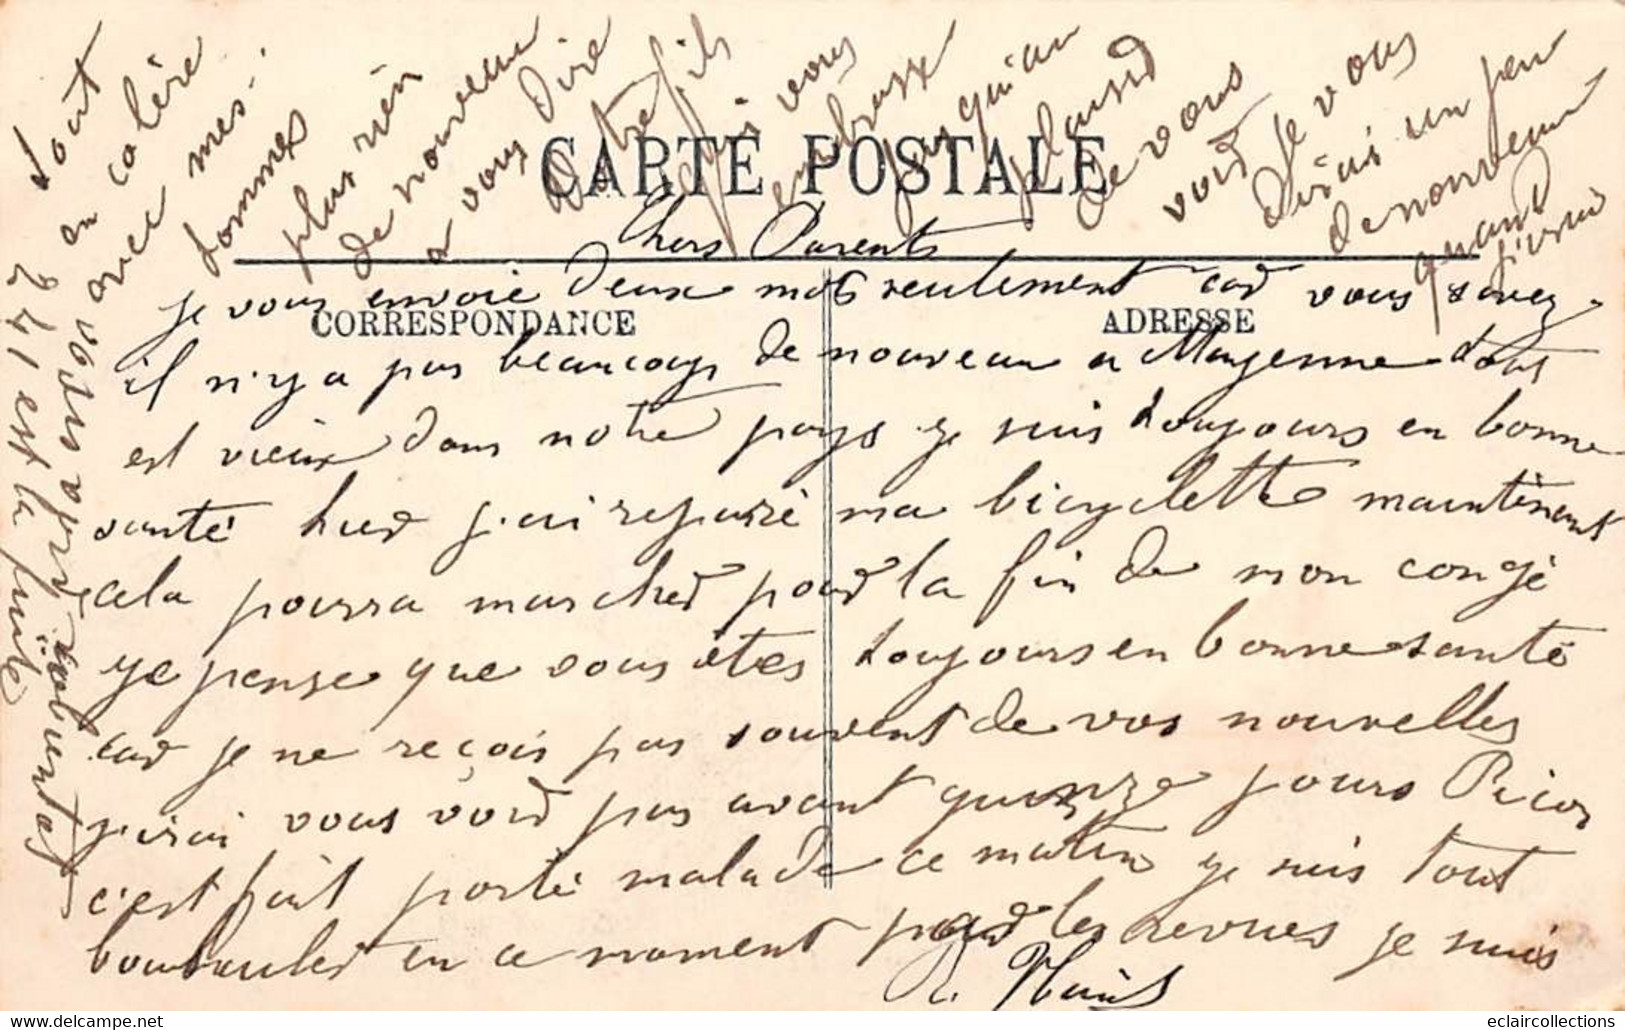 CARTE POSTALE
Chers Parents
CORRESPONDANCE
ADRESSE
je vous envoie deux mots seulement car vous savez
il n'y a pas beaucoup de nouveau a Mayenne tout
est vieux dans notre pays je suis toujours en bonne
santé hier j'ai reparé ma bicyclette maintenant
cela pourra marcher pour la fin de mon congé
je pense que vous êtes toujours en bonne santé
car je ne reçois pas souvent de vos nouvelles
j'irai vous voir pas avant quinze jours
c'est fait porté malade ce matin je suis tout
en ce moment pour les revues je suis
tout
en colère
avec mes
hommes
plus rien
de nouveau
a vous dire
Votre fils
qui vous
embrasse
jusqu'au
plaisir
de vous
voir Je vous
dirais un peu
de nouveau
quand
j'irai
241 est la fuite